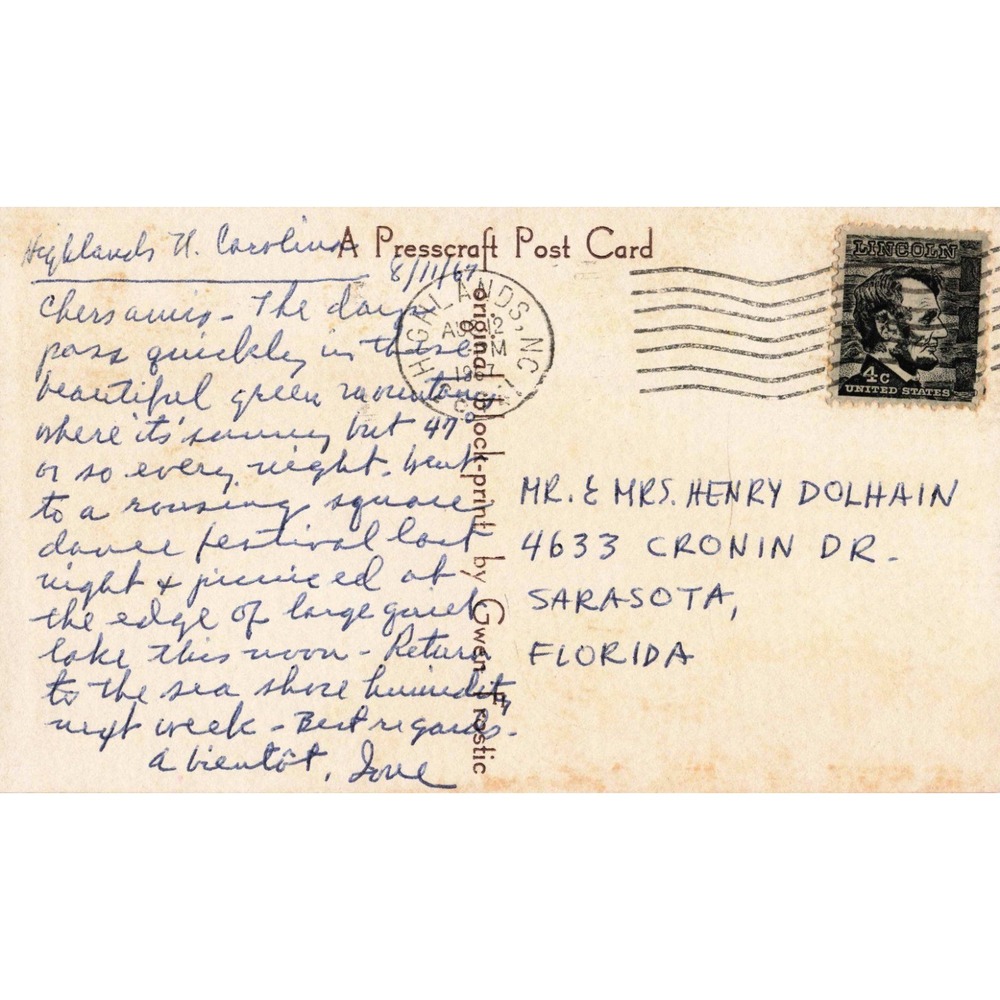 Highlands N. Carolina
8/11/67
A Presscraft Post Card
Chers amis - The days
pass quickly in these
beautiful green mountains
where it's sunny but 47°
or so every night. Went
to a rousing square
dance festival last
night & picniced at
the edge of large quiet
lake this noon - Return
to the sea shore humidity
next week - Best regards.
a bientôt,
original block-print by Gwen Frostic
HIGHLANDS, NC
AUG 12
PM
1967
LINCOLN
4c
UNITED STATES
MR. & MRS. HENRY DOLHAIN
4633 CRONIN DR.
SARASOTA,
FLORIDA